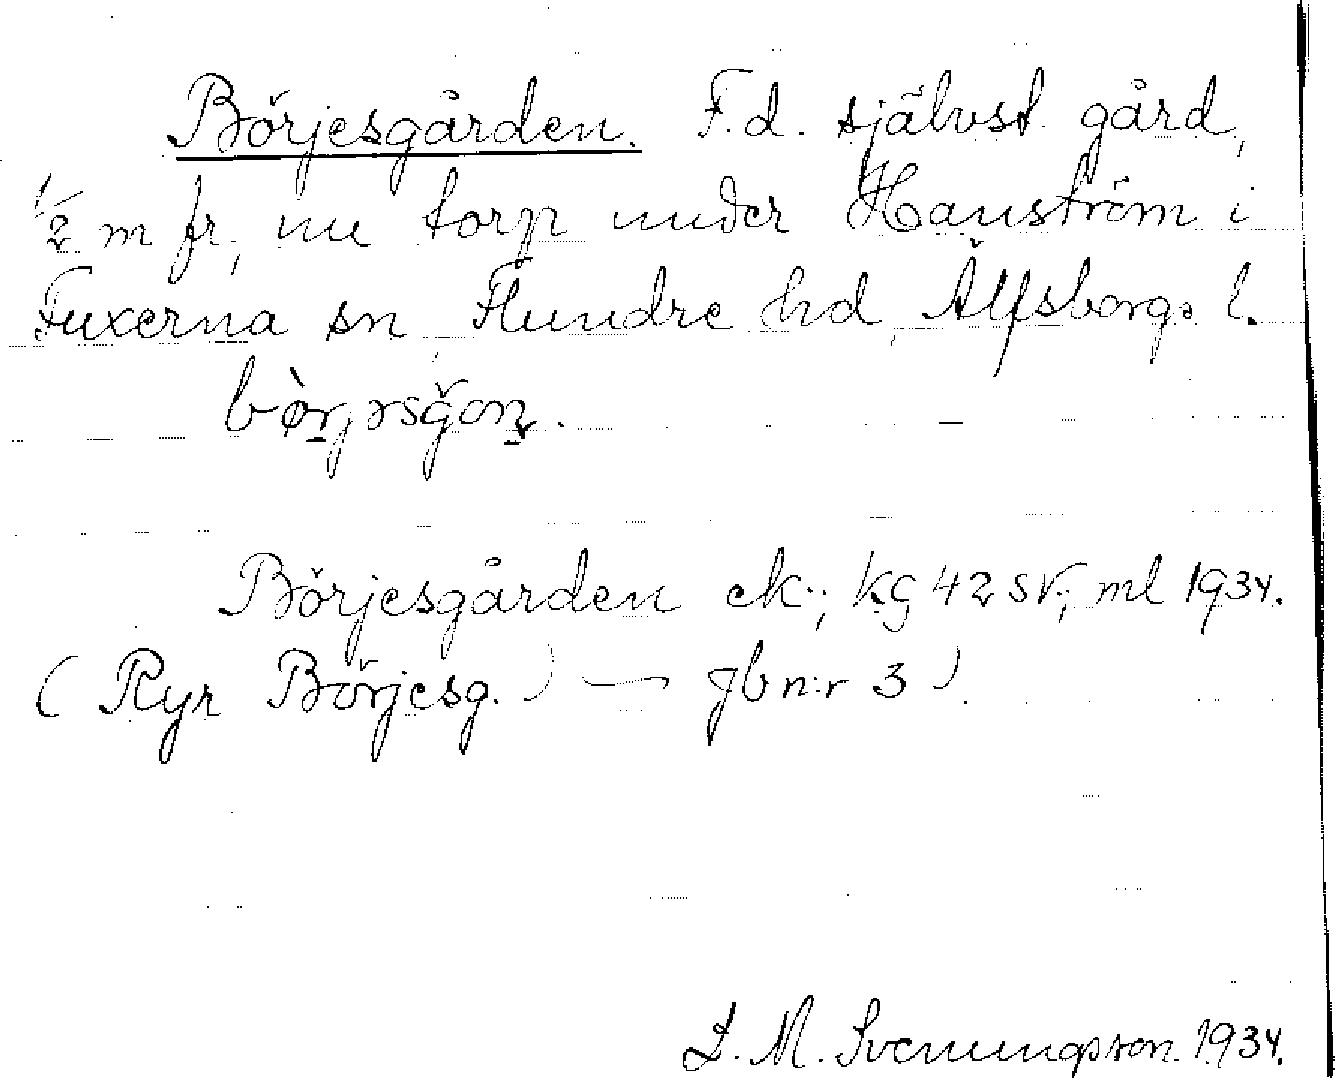 Börjesgården. F.d. självst. gård,
1/2 m fr, nu torp under Hanström i
Fuxerna sn, Flundre hd, Älfsborgs l.
Börjesgården ek.; kg 42 SV; ml 1934.
(Ryr Börjesg.) — jb n:r 3).
L. M. Svenungsson. 1934.